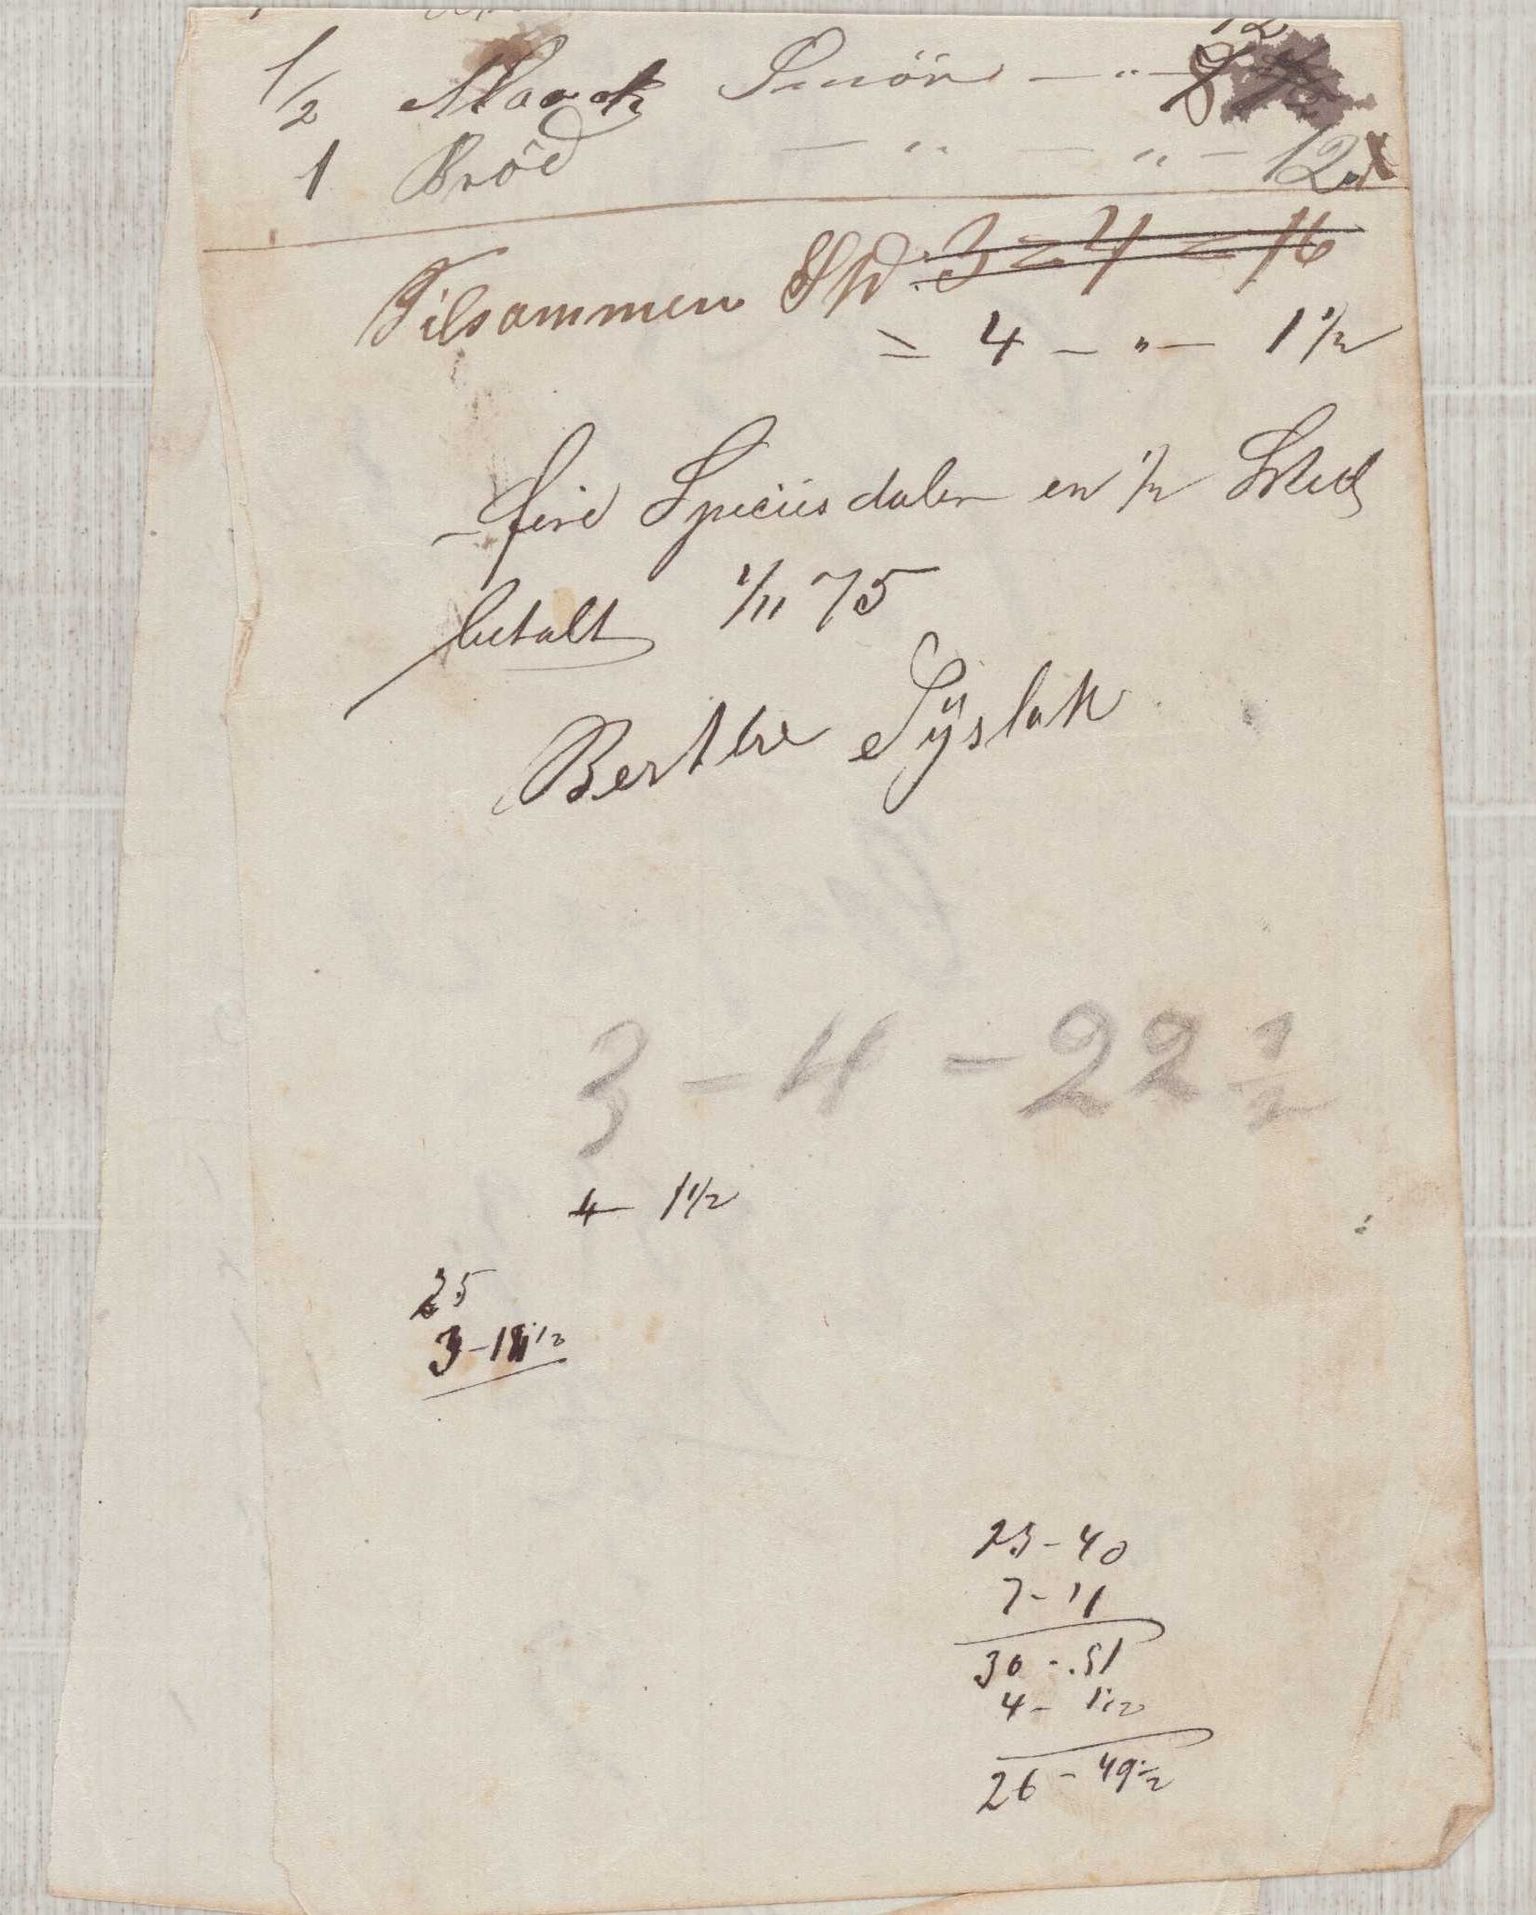 1/2 Mark Smör — " — 12
1 Bröd — " — " — 12
Tilsammen Spd: 3 = 4 = 16
= 4 — " — 1 1/2
— fire Speciesdaler en 1/2 Sk
betalt 1/11 75
Berthe Sÿslak
3 — 4 — 22 1/2
4 — 1 1/2
25
3 –
23 – 40
7 – 11
30 – 51
4 – 1 1/2
26 – 49 1/2